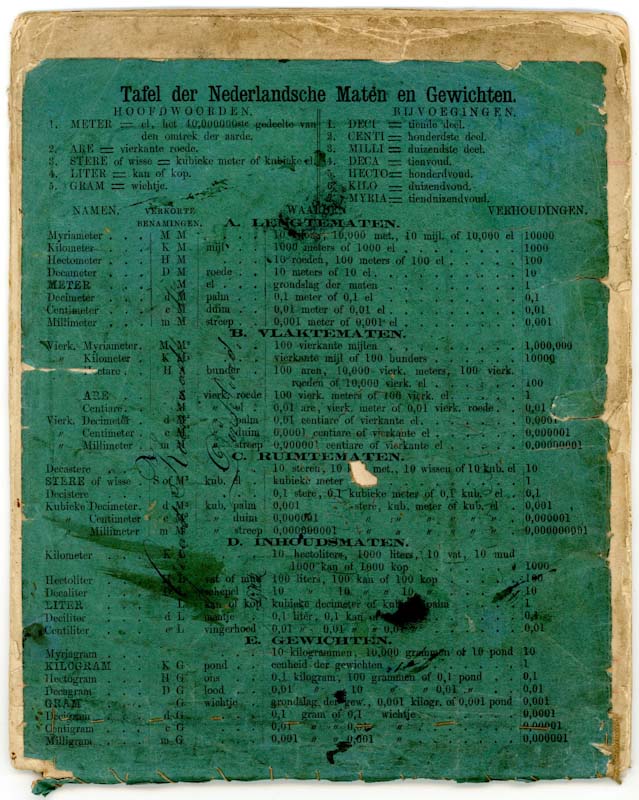 Tafel der Nederlandsche Maten en Gewichten.
HOOFDWOORDEN.
1. METER = el, het 40,000000ste gedeelte van
den omtrek der aarde.
2. ARE = vierkante roede.
3. STERE of wisse = kubieke meter of kubieke el.
4. LITER = kan of kop.
5. GRAM = wichtje.
BIJVOEGINGEN.
1. DECI = tiende deel.
2. CENTI = honderdste deel.
3. MILLI = duizendste deel.
4. DECA = tienvoud.
HECTO = honderdvoud.
KILO = duizendvoud.
MYRIA = tienduizendvoud.
NAMEN. VERKORTE BENAMINGEN. WAARDEN VERHOUDINGEN.
A. LENGTEMATEN.
Myriameter M M 10,000 met., 10 mijl. of 10,000 el 10000
Kilometer K M mijl 1000 meters of 1000 el 1000
Hectometer H M 10 roeden, 100 meters of 100 el 100
Decameter D M roede 10 meters of 10 el 10
METER M el grondslag der maten 1
Decimeter d M palm 0,1 meter of 0,1 el 0,1
Centimeter c M duim 0,01 meter of 0,01 el 0,01
Millimeter m M streep 0,001 meter of 0,001 el 0,001
B. VLAKTEMATEN.
Vierk. Myriameter M M² 100 vierkante mijlen 1,000,000
" Kilometer K M² vierkante mijl of 100 bunders 10000
Hectare H bunder 100 aren, 10,000 vierk. meters, 100 vierk.
roeden of 10,000 vierk. el 100
ARE vierk. roede 100 vierk. meters of 100 vierk. el 1
Centiare " el 0,01 are, vierk. meter of 0,01 vierk. roede 0,01
Vierk. Decimeter d M² " palm 0,01 centiare of vierkante el 0,0001
" Centimeter c " duim 0,0001 centiare of vierkante el 0,000001
" Millimeter m " streep 0,000001 centiare of vierkante el 0,00000001
C. RUIMTEMATEN.
Decastere 10 steren, 10 met., 10 wissen of 10 kub. el 10
STERE of wisse S of M³ kub. el kubieke meter 1
Decistere 0,1 stere, 0,1 kubieke meter of 0,1 kub. el 0,1
Kubieke Decimeter d M³ kub. palm 0,001 stere, kub. meter of kub. el 0,001
" Centimeter c M³ " duim 0,000001 " " " " 0,000001
" Millimeter m M³ " streep 0,000000001 " " " " 0,000000001
D. INHOUDSMATEN.
Kilometer K 10 hectoliters, 1000 liters, 10 vat, 10 mud
1000 kan of 1000 kop 1000
Hectoliter H L vat of mud 100 liters, 100 kan of 100 kop 100
Decaliter schepel 10 " 10 " 10 " 10
LITER L kan of kop kubieke decimeter of palm 1
Deciliter d L maatje 0,1 liter, 0,1 kan of 0,1
Centiliter c L vingerhoed 0,01 " 0,01 " 0,01 " 0,01
E. GEWICHTEN.
Myriagram 10 kilogrammen, 10,000 grammen of 10 pond 10
KILOGRAM K G pond eenheid der gewichten 1
Hectogram H G ons 0,1 kilogram, 100 grammen of 0,1 pond 0,1
Decagram D G lood 0,01 " 10 " 0,01 " 0,01
GRAM G wichtje grondslag der gew., 0,001 kilogr. of 0,001 pond 0,001
Decigram d G 0,1 gram of 0,1 wichtje 0,0001
Centigram c G 0,01 " 0,01 " 0,00001
Milligram m G 0,001 " 0,001 " 0,000001